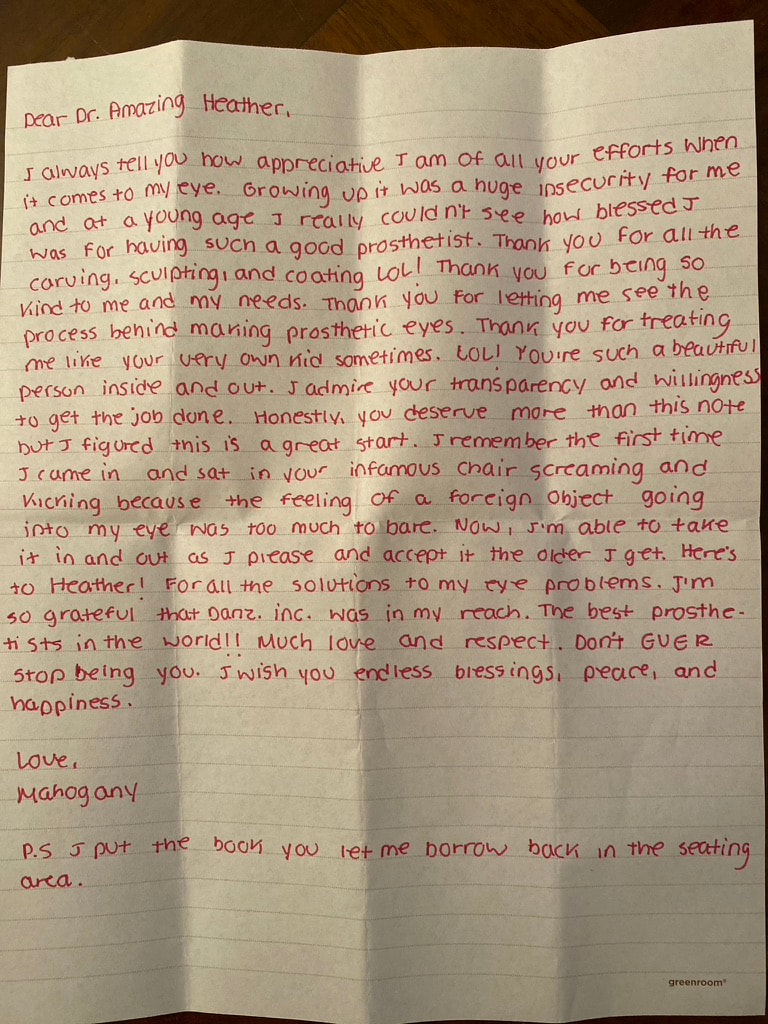 Dear Dr. Amazing Heather,
I always tell you how appreciative I am of all your efforts when
it comes to my eye. Growing up it was a huge insecurity for me
and at a young age I really couldn't see how blessed I
was for having such a good prosthetist. Thank you for all the
carving, sculpting, and coating LOL! Thank you for being so
kind to me and my needs. Thank you for letting me see the
process behind making prosthetic eyes. Thank you for treating
me like your very own kid sometimes. LOL! You're such a beautiful
person inside and out. I admire your transparency and willingness
to get the job done. Honestly, you deserve more than this note
but I figured this is a great start. I remember the first time
I came in and sat in your infamous chair screaming and
kicking because the feeling of a foreign object going
into my eye was too much to bare. Now, I'm able to take
it in and out as I please and accept it the older I get. Here's
to Heather! For all the solutions to my eye problems. I'm
so grateful that Danz. inc. was in my reach. The best prosthe-
tists in the world!! Much love and respect. Don't EVER
stop being you. I wish you endless blessings, peace, and
happiness.
Love,
Mahogany
P.S I put the book you let me borrow back in the seating
area.
greenroom®